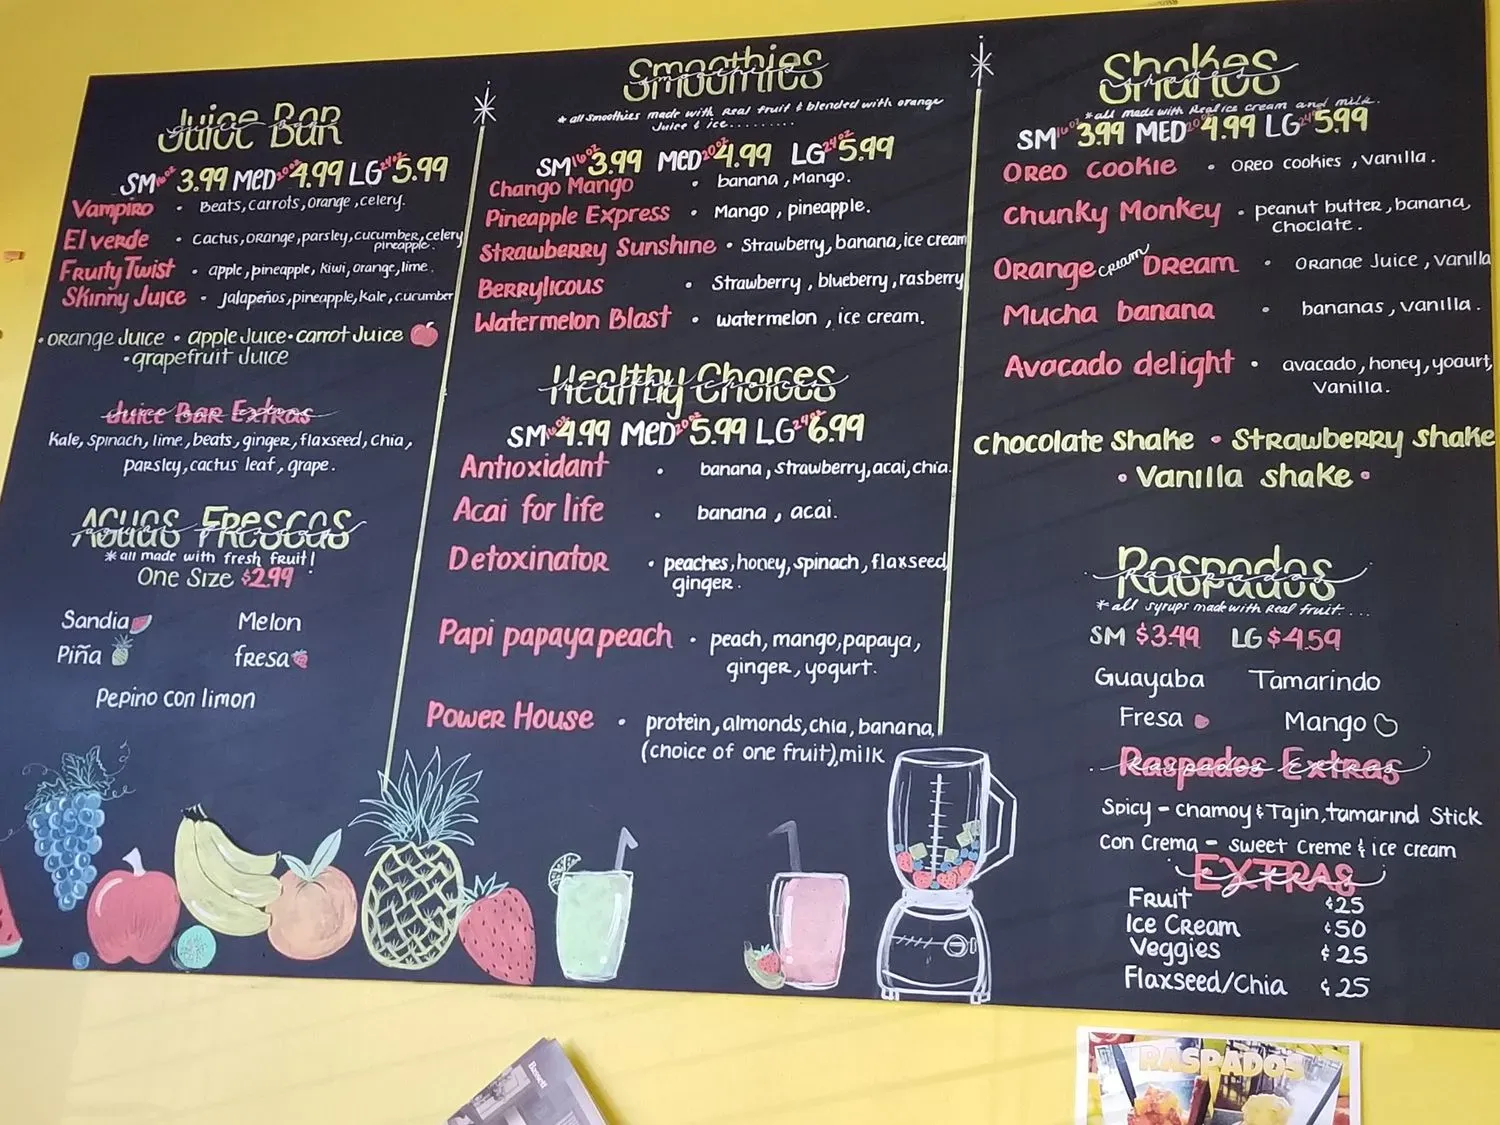 Juice Bar
SM 16oz 3.99 MED 20oz 4.99 LG 24oz 5.99
Vampiro • Beats, carrots, orange, celery.
El verde • Cactus, orange, parsley, cucumber, celery
pineapple.
Fruity Twist • apple, pineapple, kiwi, orange, lime.
Skinny Juice • Jalapeños, pineapple, kale, cucumber
• orange Juice • apple Juice • carrot Juice
• grapefruit Juice
Juice Bar Extras
Kale, spinach, lime, beats, ginger, flaxseed, chia,
parsley, cactus leaf, grape.
Aguas Frescas
*all made with fresh fruit!
One Size $2.99
Sandia Melon
Piña fresa
Pepino con limon
Smoothies
*all smoothies made with Real fruit & blended with orange
Juice & ice.........
SM 16oz 3.99 MED 20oz 4.99 LG 24oz 5.99
Chango Mango • banana, Mango.
Pineapple Express • Mango, pineapple.
Strawberry Sunshine • Strawberry, banana, ice cream
Berrylicous • Strawberry, blueberry, rasberry
Watermelon Blast • watermelon, ice cream.
Healthy Choices
SM 16oz 4.99 MED 20oz 5.99 LG 24oz 6.99
Antioxidant • banana, strawberry, acai, chia.
Acai for life • banana, acai.
Detoxinator • peaches, honey, spinach, flaxseed,
ginger.
Papi papaya peach • peach, mango, papaya,
ginger, yogurt.
Power House • protein, almonds, chia, banana,
(choice of one fruit), milk
Shakes
*all made with Real ice cream and milk.
SM 16oz 3.99 MED 20oz 4.99 LG 24oz 5.99
Oreo cookie • oreo cookies, vanilla.
Chunky Monkey • peanut butter, banana,
choclate.
Orange cream Dream • orange Juice, vanilla
Mucha banana • bananas, vanilla.
Avocado delight • avacado, honey, yogurt,
vanilla.
chocolate shake • Strawberry shake
• Vanilla shake •
Raspados
*all syrups made with Real fruit....
SM $3.49 LG $4.59
Guayaba Tamarindo
Fresa Mango
Raspados Extras
Spicy - chamoy & Tajin, tamarind Stick
Con Crema - sweet creme & ice cream
EXTRAS
Fruit ¢25
Ice Cream ¢50
Veggies ¢25
Flaxseed/Chia ¢25
Bassett
RASPADOS